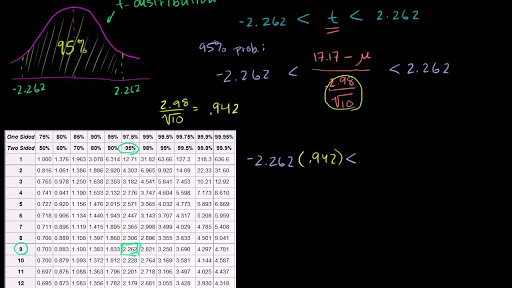 t-distribution
95%
-2.262
2.262
-2.262 < t < 2.262
95% prob:
-2.262 < 17.17 - μ < 2.262
2.98
√10
2.98
√10 = .942
-2.262(.942) <
One Sided 75% 80% 85% 90% 95% 97.5% 99% 99.5% 99.75% 99.9% 99.95%
Two Sided 50% 60% 70% 80% 90% 95% 98% 99% 99.5% 99.8% 99.9%
1 1.000 1.376 1.963 3.078 6.314 12.71 31.82 63.66 127.3 318.3 636.6
2 0.816 1.061 1.386 1.886 2.920 4.303 6.965 9.925 14.09 22.33 31.60
3 0.765 0.978 1.250 1.638 2.353 3.182 4.541 5.841 7.453 10.21 12.92
4 0.741 0.941 1.190 1.533 2.132 2.776 3.747 4.604 5.598 7.173 8.610
5 0.727 0.920 1.156 1.476 2.015 2.571 3.365 4.032 4.773 5.893 6.869
6 0.718 0.906 1.134 1.440 1.943 2.447 3.143 3.707 4.317 5.208 5.959
7 0.711 0.896 1.119 1.415 1.895 2.365 2.998 3.499 4.029 4.785 5.408
8 0.706 0.889 1.108 1.397 1.860 2.306 2.896 3.355 3.833 4.501 5.041
9 0.703 0.883 1.100 1.383 1.833 2.262 2.821 3.250 3.690 4.297 4.781
10 0.700 0.879 1.093 1.372 1.812 2.228 2.764 3.169 3.581 4.144 4.587
11 0.697 0.876 1.088 1.363 1.796 2.201 2.718 3.106 3.497 4.025 4.437
12 0.695 0.873 1.083 1.356 1.782 2.179 2.681 3.055 3.428 3.930 4.318